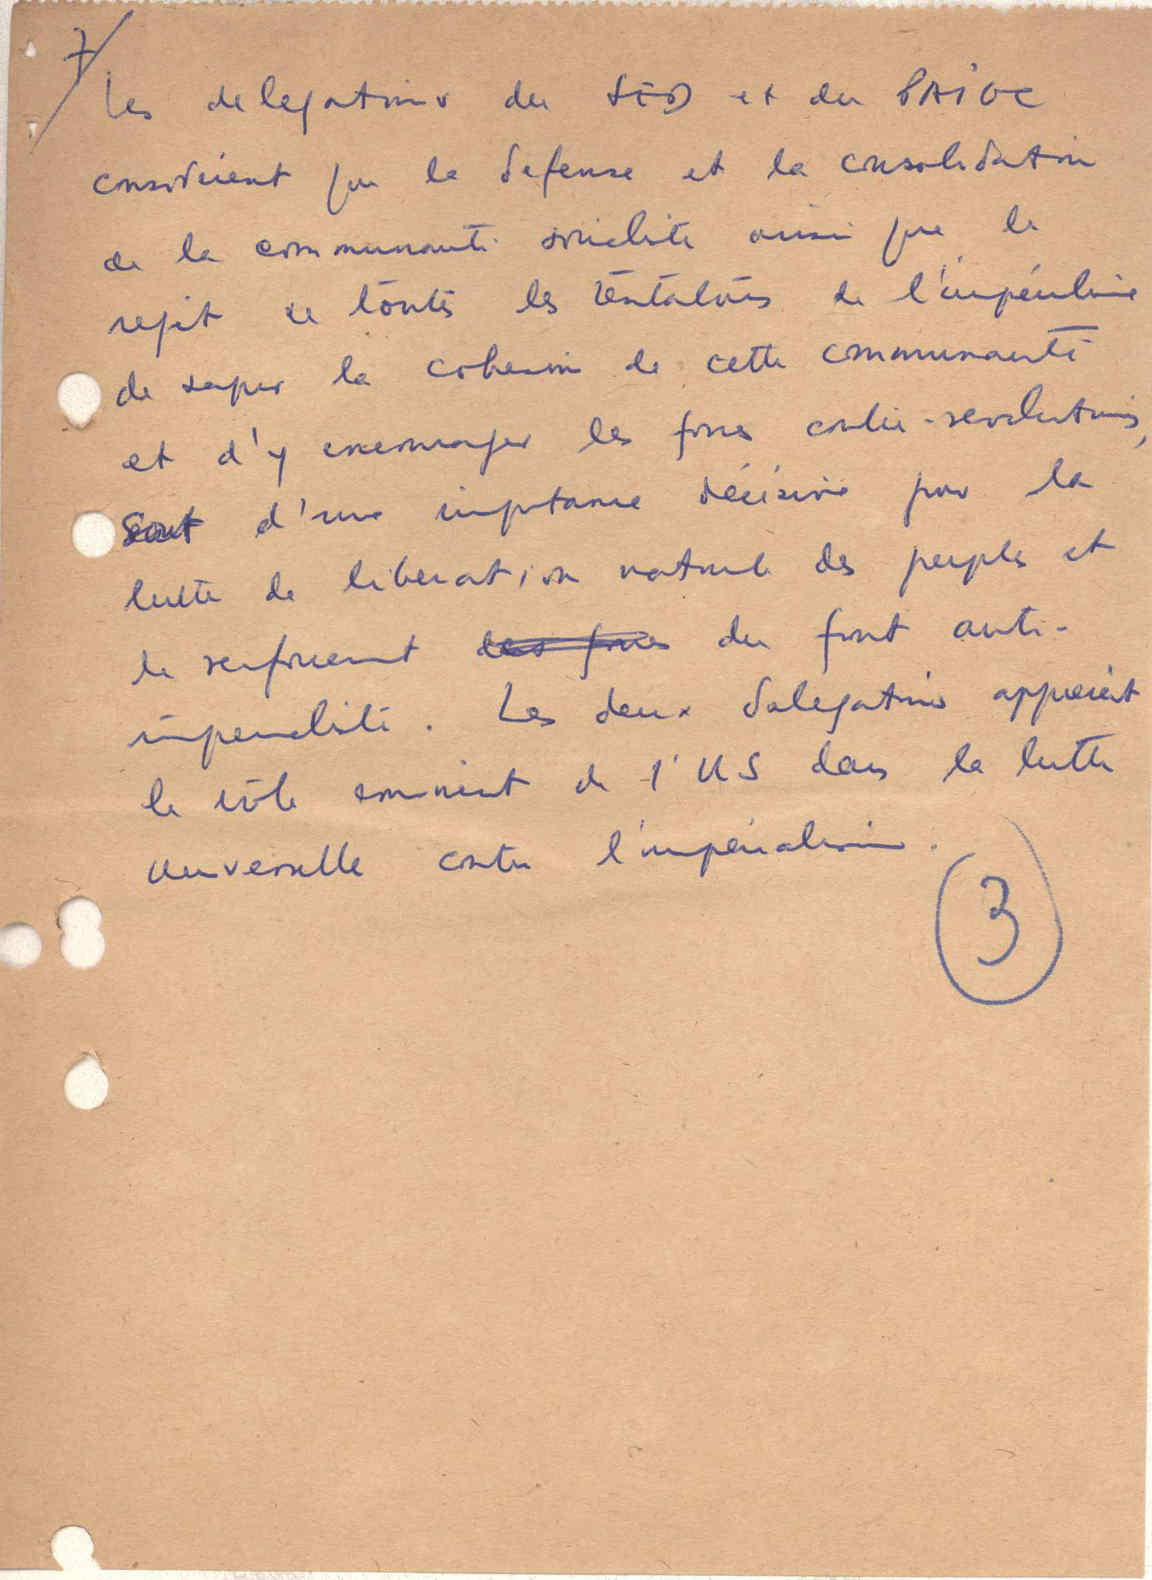 7/
Les delegations du SED et du PAIGC
considèrent que la defense et la consolidation
de la communauté socialiste ainsi que le
rejet de toutes les tentatives de l'impérialisme
de saper la cohesion de cette communauté
et d'y encourager les forces contre-revolutionnaires,
sont d'une importance décisive pour la
lutte de liberation nationale des peuples et
le renforcement des forces du front anti-
imperialiste. Les deux delegations apprécient
le rôle eminent de l'US dans la lutte
universelle contre l'impérialisme.
3